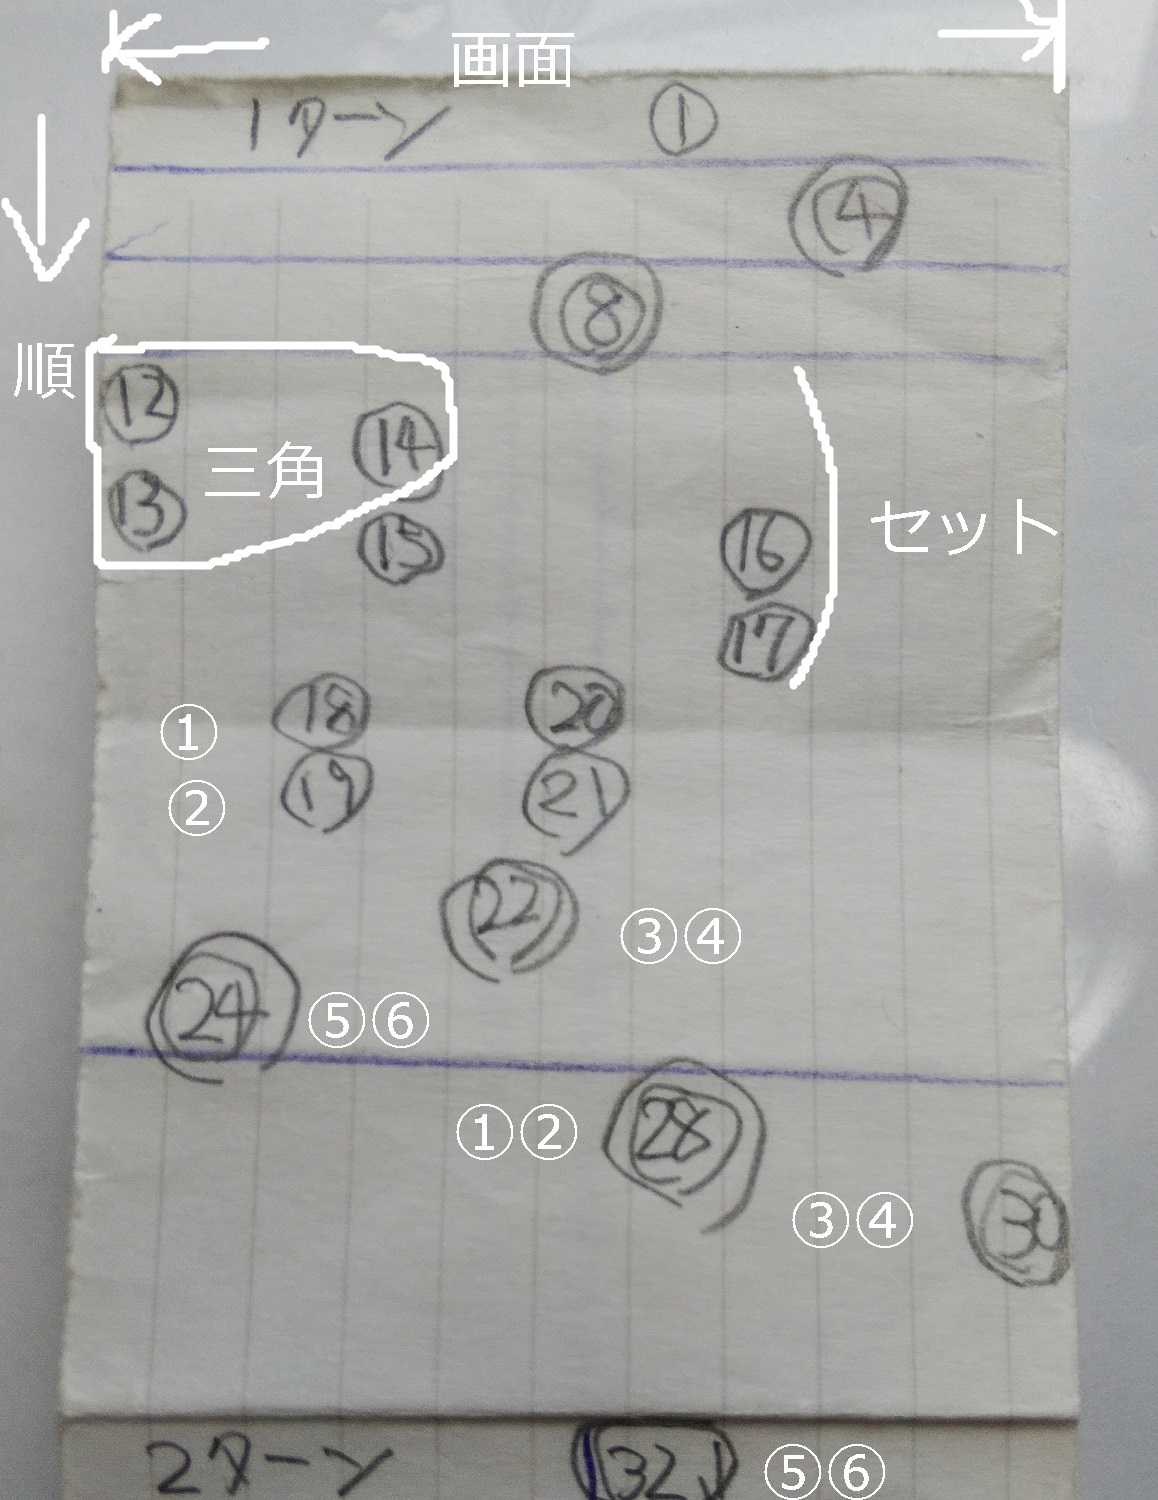 画面
1ターン ①
④
⑧
順
⑫ ⑭
三角
⑬ ⑮ ⑯ セット
⑰
① ⑱ ⑳
② ⑲ ㉑
㉒ ③④
㉔ ⑤⑥
①② ㉘
③④ ㉚
2ターン ㉜ ⑤⑥